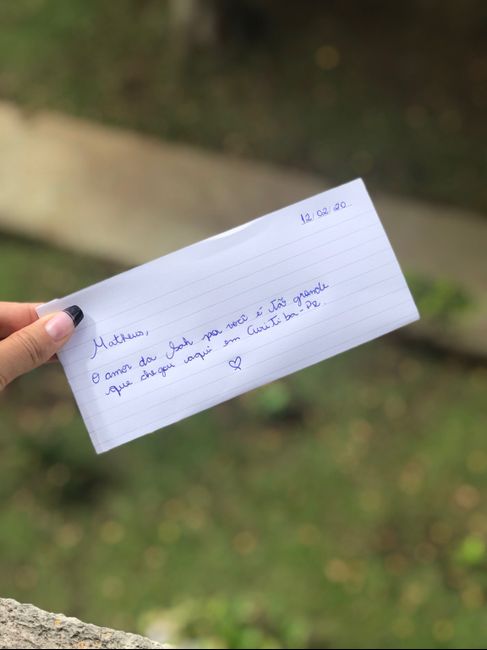 12/02/20..
Matheus,
O amor da Sah por você é tão grande
que chegou aqui em Curitiba-PR.
♡